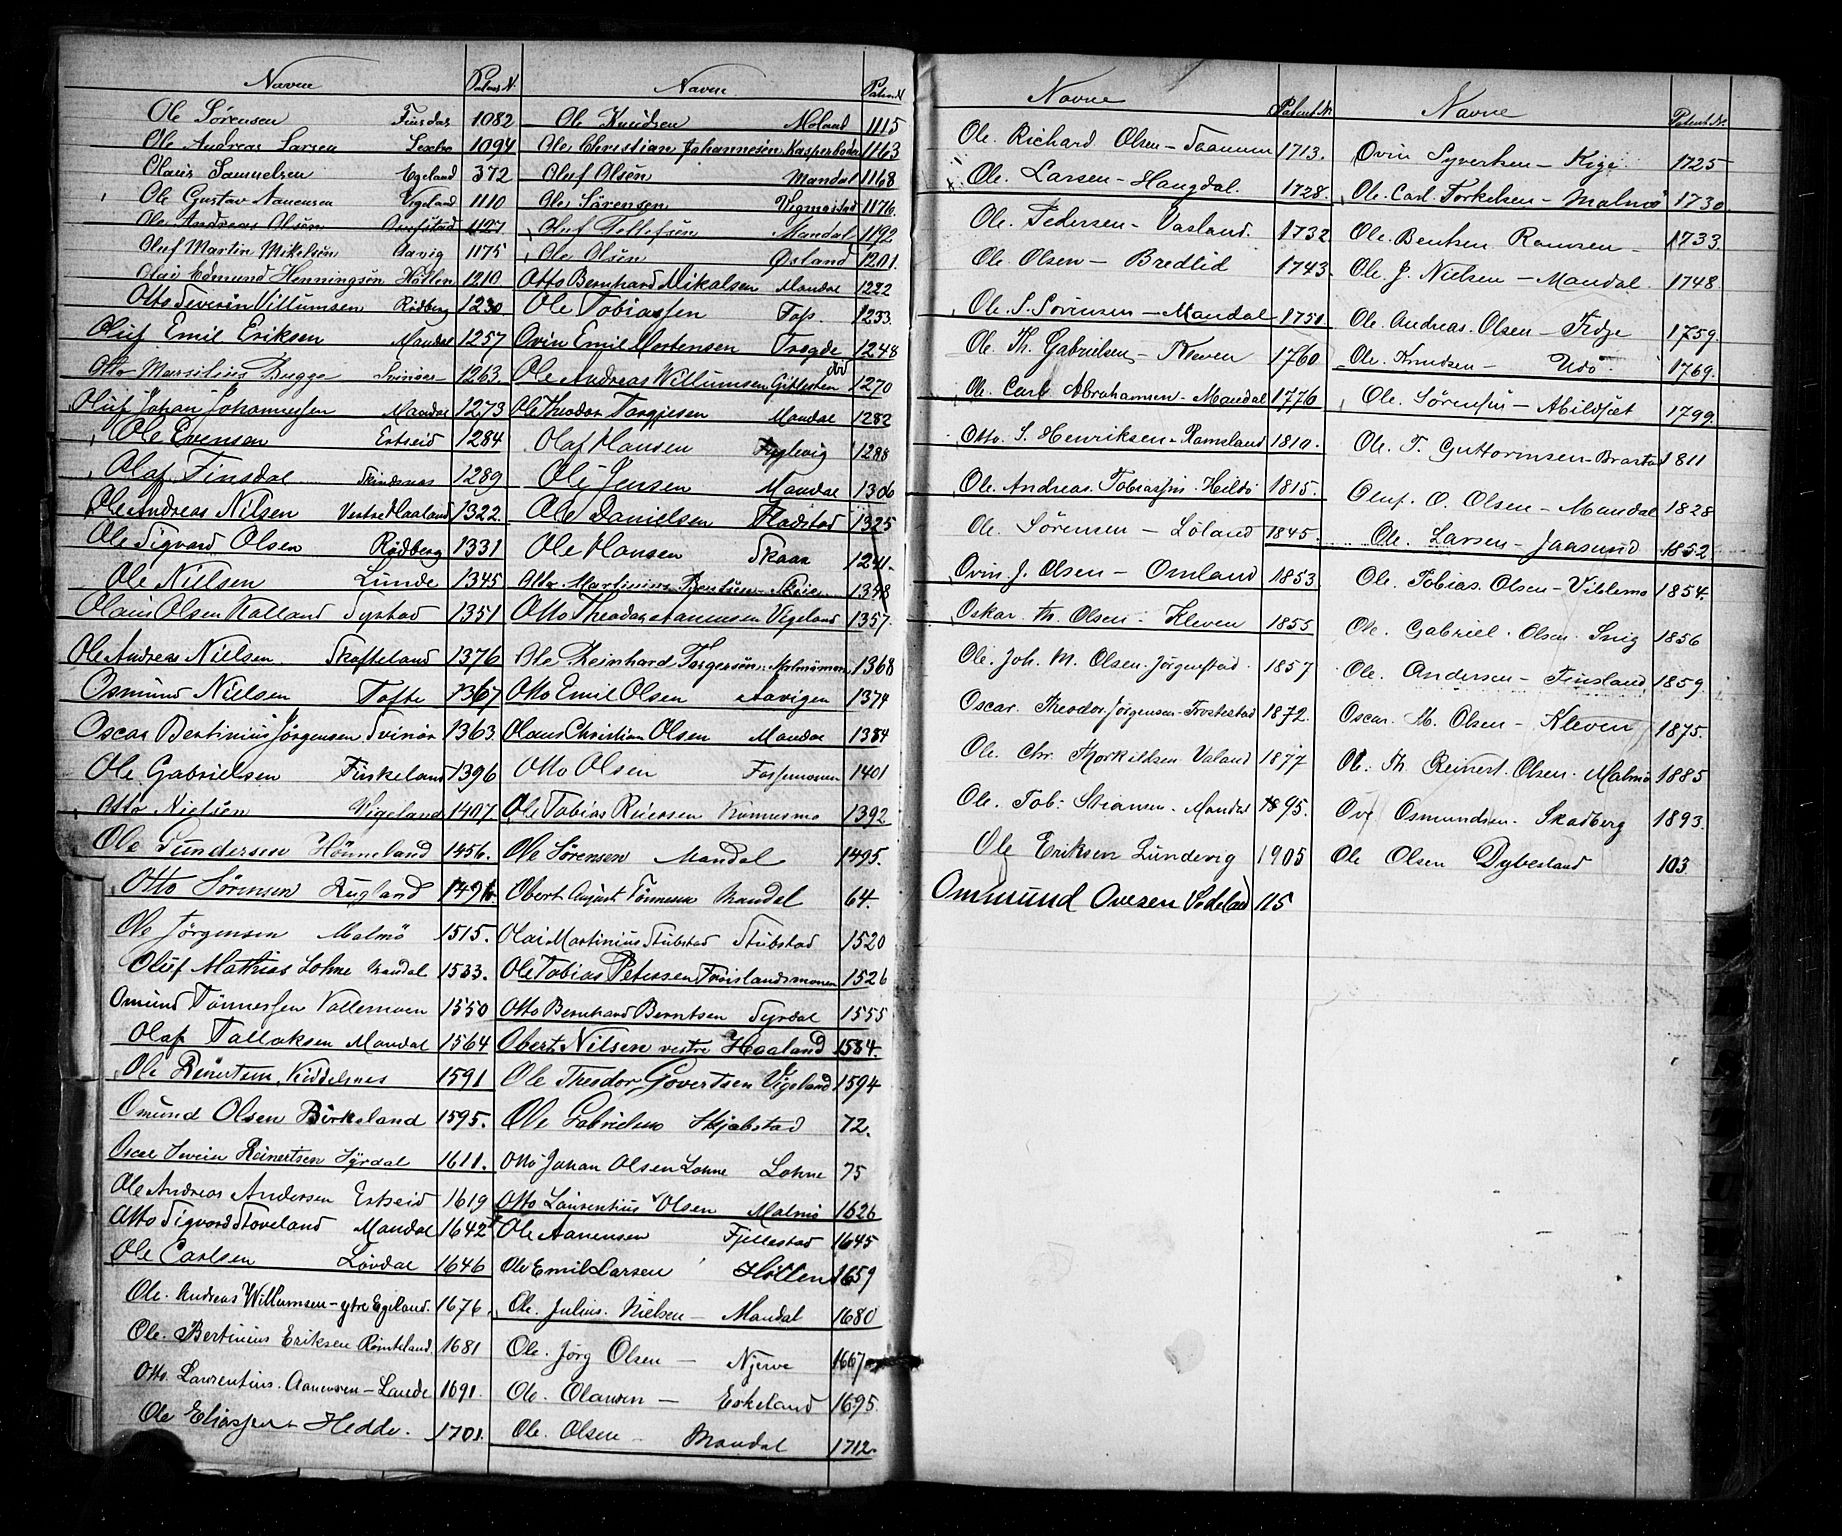 Navne Patent N.
Ole Sörensen Finsdal 1082
Ole Andreas Larsen 1094
Olaus Samuelsen Egeland 372
Ole Gustav Aanensen Vigeland 1110
Ole Andreas Olsen 1127
Oluf Martin Mikelsen Aavig 1175
Olai Edmund Henningsön Hölten 1210
Otto Severin Villumsen Rödberg 1230
Oluf Emil Eriksen Mandal 1257
Otto Marsilius Bugge Svinöer 1263.
Oluf Johan Johannessen Mandal 1273
Ole Evensen Ertseid 1284
Olaf Finsdal 1289
Ole Andreas Nilsen Vestre Haaland 1322.
Ole Sigvard Olsen Rödberg 1331
Ole Nielsen Lunde 1345
Olaus Olsen Valland Syrstad 1351
Ole Andreas Nielsen Skofteland 1376
Osmund Nielsen Tofte 1367
Oscar Bertinius Jörgensen Svinör 1363.
Ole Gabrielsen Finkeland 1396
Otto Nielsen Vigeland 1407
Ole Gundersen Hönneland 1456.
Otto Sörensen Rugland 1491.
Ole Jörgensen Malmö 1515.
Oluf Mathias Lohne Mandal 1533.
Omund Tönnessen Vallemoen 1550
Olaf Tallaksen Mandal 1564
Ole Reinertsen Kiddelsnes 1591
Omund Olsen Birkeland 1595.
Oscar Severin Reinertsen Syrdal 1611.
Ole Andreas Andersen Ertseid 1619
Otto Sigvard Stoveland Mandal 1642
Ole Carlsen Lövdal 1646
Ole. Andreas Willumsen - ytre Egeland. 1676.
Ole. Bertinius Eriksen Römteland. 1681
Otto. Laurentius. Aanensen - Lande 1691.
Ole Eliassen - Hedde. 1701.
Navne Patent N
Ole Knudsen Moland 1115
Ole Christian Johannesen Kasperboden 1163
Oluf Olsen Mandal 1168
Ole Sörensen Vigmostad 1176.
Oluf Tellefsen Mandal 1192
Ole Olsen Øsland 1201.
Otto Bernhard Mikalsen Mandal 1222
Ole Tobiassen Foss. 1233.
Ovin Emil Mortensen Tregde 1248
Ole Andreas Willumsen Gittlesten 1270
Ole Theodor Torgjesen Mandal 1282
Olaf Hansen 1288
Ole Jensen Mandal 1306
Ole Danielsen Fladstad 1325
Ole Hansen Skaar 1241.
Otto Martinius Berntsen 1348
Otto Theodor Aanensen Vigeland 1357.
Ole Reinhard Torgersen. Malmömoen 1368
Otto Emil Olsen Aavigen 1374
Olaus Christian Olsen Mandal 1384
Otto Olsen Fossemoen 1401
Ole Tobias Reiersen Rämesmo 1392
Ole Sörensen Mandal 1495.
Obert August Tönnesen Mandal 64.
Olai Martinius Stubstad Stubstad 1520
Ole Tobias Petersen Fröislandsmoen 1526
Otto Bernhard Berntsen Syrdal 1555
Obert Nilsen vestre Haaland 1584.
Ole Theodor Govertsen Vigeland 1594
Ole Gabrielsen Skjebstad 72.
Otto Johan Olsen Lohne Lohne 75
Otto Laurentius Olsen Malmö 1626
Ole Aanensen Fjellestad 1645
Ole Emil Larsen Hölten 1659
Ole. Julius. Nielsen - Mandal 1680
Ole. Jörg Olsen - Njerve 1667
Ole. Olausen - Eskeland 1695.
Ole. Olsen - Mandal 1712.
Navne Patent N.
Ole. Richard Olsen - Taanum 1713.
Ole. Larsen - Haugdal. 1728.
Ole. Pedersen - Vasland. 1732
Ole. Olsen - Bredlid 1743.
Ole. S. Sörensen - Mandal 1751
Ole. Th. Gabrielsen - Kleven 1760
Ole. Carl Abrahamsen - Mandal 1776
Otto. S. Henriksen - Rameland 1810.
Ole. Andreas. Tobiassen - Hildö 1815.
Ole. Sörensen - Löland 1845.
Ovin J. Olsen - Omland 1853.
Oskar. Th. Olsen - Kleven 1855
Ole. Joh. M. Olsen. Jörgenstad. 1857
Oscar. Theodor. Jörgensen - Frostestad 1872.
Ole. Chr. Thorkildsen Valand 1877
Ole. Tob: Stiansen - Mandal 1895.
Ole Eriksen Lundevig 1905
Ommund Ovesen Vodeland 115
Navne Patent Nr.
Ovin Syvertsen - Kige 1725
Ole. Carl. Torkelsen - Malmö 1730.
Ole. Bentsen Ramsen - 1733.
Ole. J. Nielsen - Mandal. 1748
Ole. Andreas. Olsen - Fidje 1759.
Ole. Knudsen - Udö. 1769.
Ole. Sörensen - Abildsæt 1799.
Ole. T. Guttormsen - Brastad 1811
Oluf. O. Olsen - Mandal 1828
Ole. Larsen - Jaasund 1852
Ole. Tobias. Olsen - Viblemo 1854.
Ole. Gabriel. Olsen. Snig 1856
Ole. Andersen - Finsland 1859
Oscar. M. Olsen - Kleven 1875.
Ole. Th. Reinert. Olsen. Malmö 1885
Ove Osmundsen. Skadberg 1893.
Ole Olsen Dybesland 103